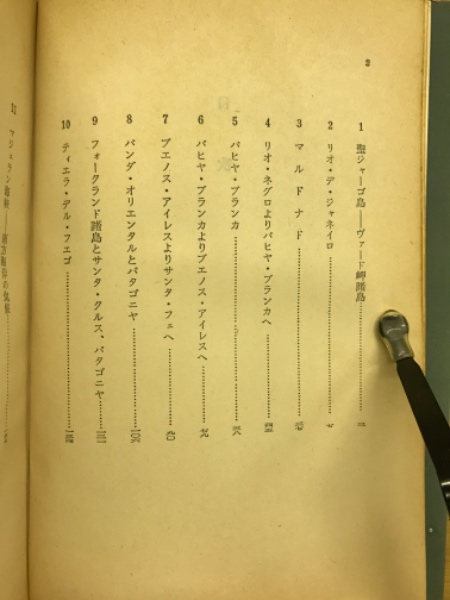 2
1 聖ジャーゴ島――ヴァード岬諸島
2 リオ・デ・ジャネイロ……七
3 マルドナド
4 リオ・ネグロよりバヒヤ・ブランカへ
5 バヒヤ・ブランカ……五八
6 バヒヤ・ブランカよりブエノス・アイレスへ……七九
7 ブエノス・アイレスよりサンタ・フェへ……九〇
8 バンダ・オリエンタルとパタゴニヤ……一〇六
9 フォークランド諸島とサンタ・クルス、パタゴニヤ
10 ティエラ・デル・フエゴ
11 マジェラン海峡――南方海岸の気候